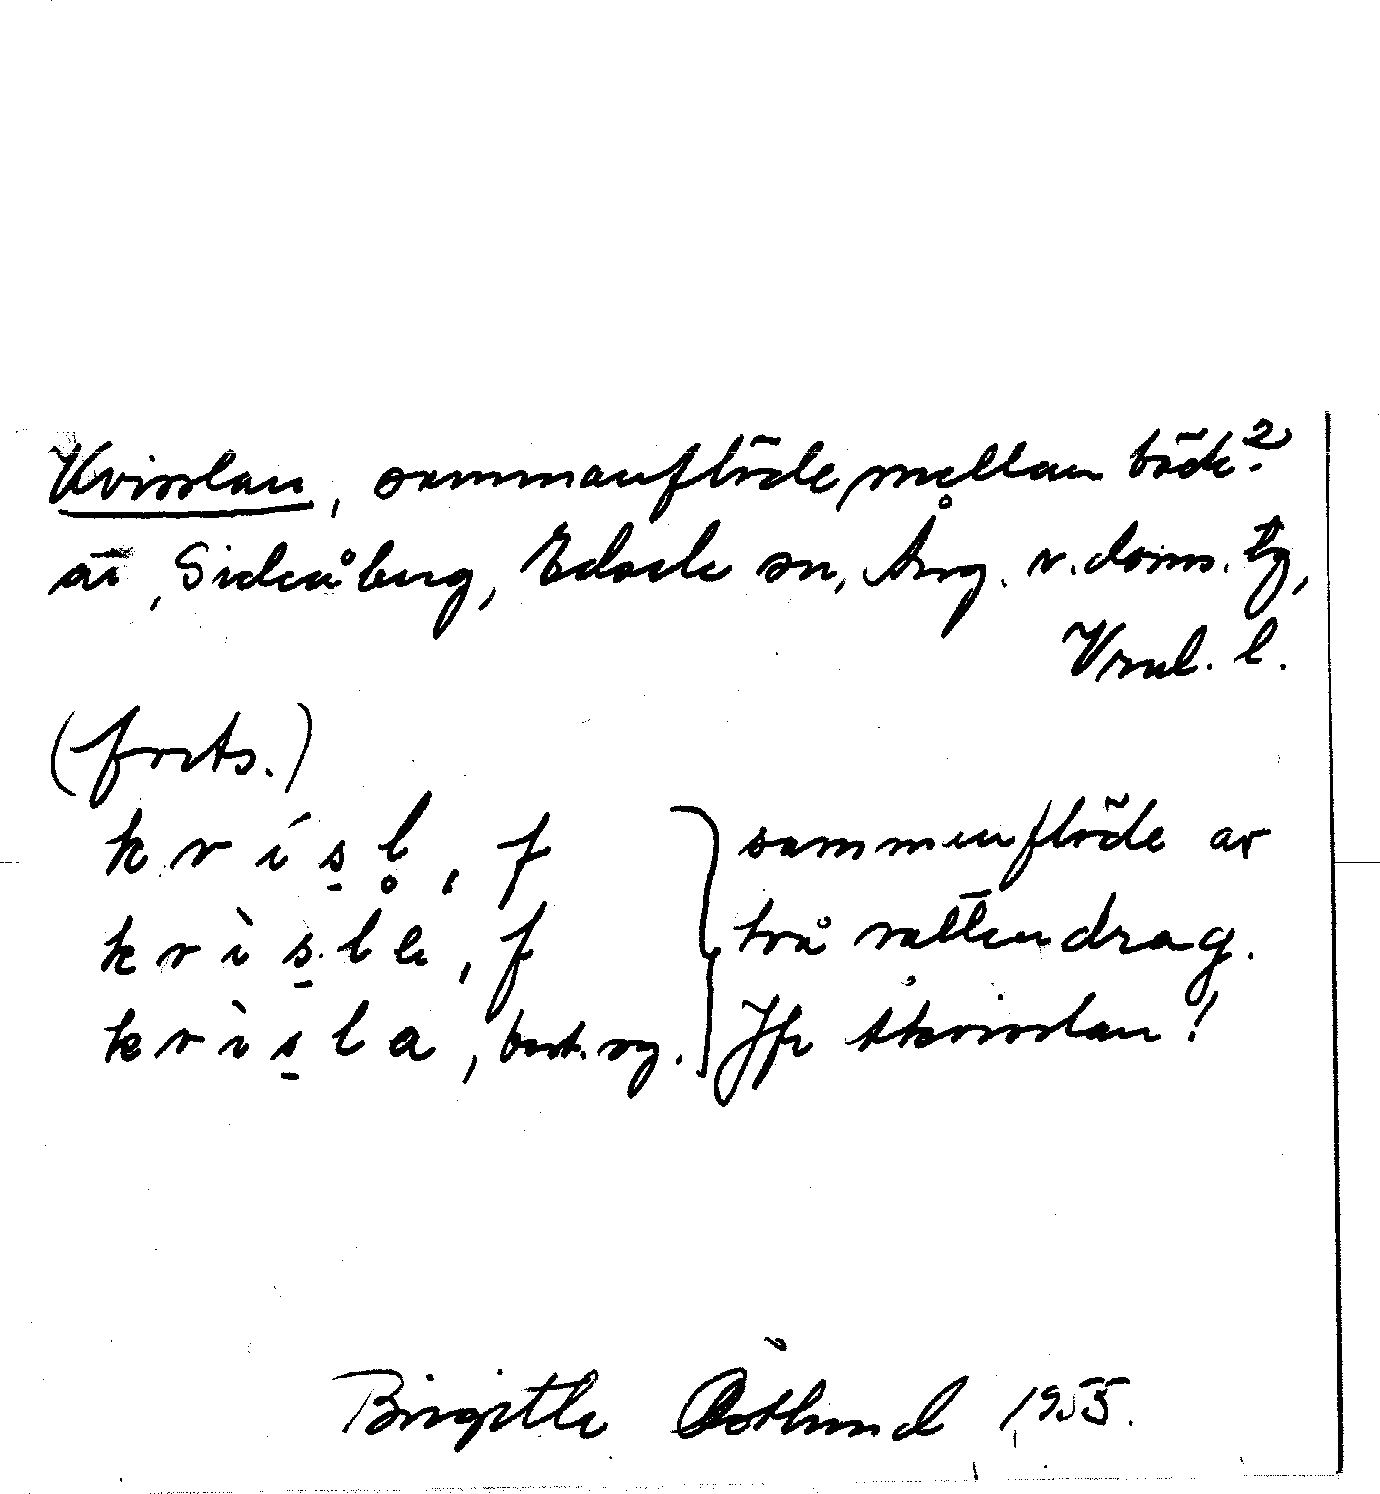 Kvisslan, sammanflöde mellan bäck?
är, Sideåberg, Edsele sn, Ång. v. doms. tg,
Vrnl. l.
(forts.)
k v í s̠ l̥, f
k v ì s̠ l e, f
k v ì s̠ l a, best. sg.
sammanflöde av
två vattendrag.
Jfr åkvisslan!
Birgitte Östlund 1955.